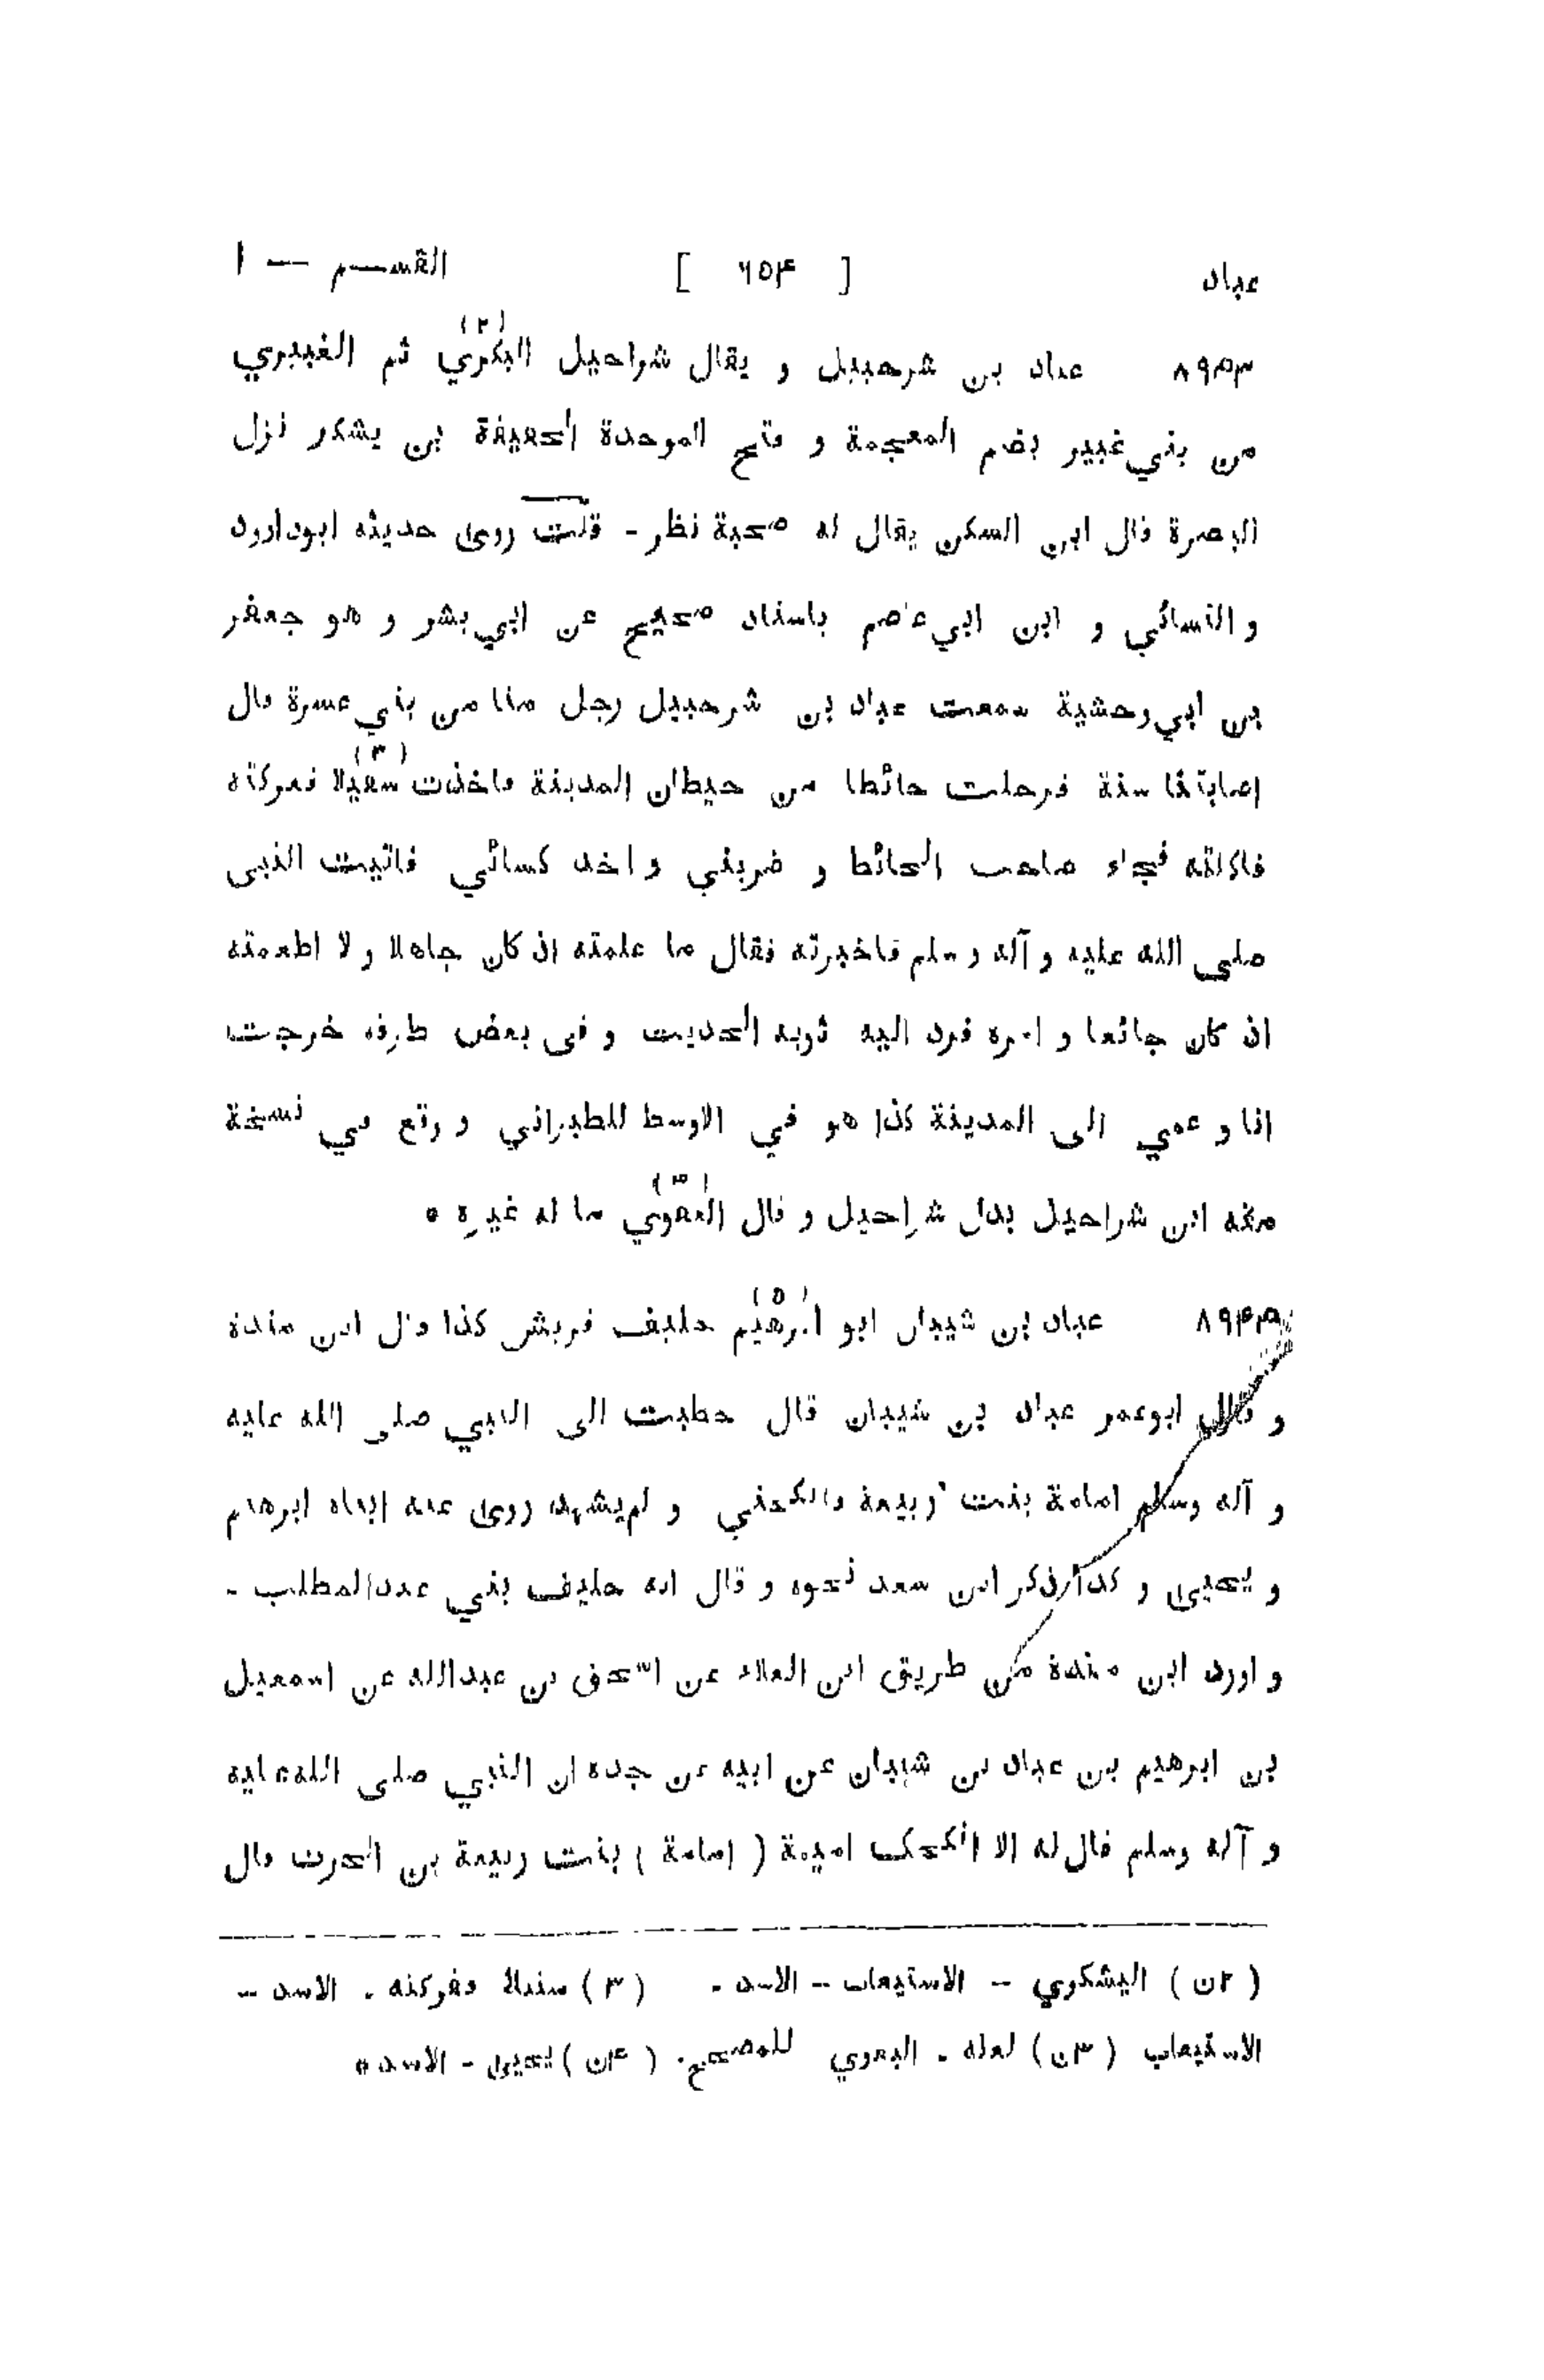 عباد [ ٦٥۴ ] القســم — ١
٨٩۴٣ عباد بن شرحبيل و يقال شراحيل البكري (٢) ثم الغبيري
من بني غبير بضم المعجمة و فتح الموحدة الخفيفة بن يشكر نزل
البصرة قال ابن السكن يقال له صحبة نظر - قلت روى حديثه ابوداوود
و النسائي و ابن ابي عاصم باسناد صحيح عن ابي بشر و هو جعفر
بن ابي وحشية سمعت عباد بن شرحبيل رجل منا من بني قال
اصابتنا سنة فدخلت حائطا من حيطان المدينة فاخذت (٣) ففركته
فاكلته فجاء صاحب الحائط و ضربني و اخذ كسائي فاتيت النبى
صلى الله عليه و آله و سلم فاخبرته فقال ما علمته اذ كان جاهلا و لا اطعمته
اذ كان جائعا و امره فرد اليه ثوبه الحديث و فى بعض طرقه خرجت
انا و عمي الى المدينة كذا هو في الاوسط للطبراني و وقع في نسخة
منه ابن شراحيل بدل شراحيل و قال (٣) ما له غيره ٭
٨٩۴۴ عباد بن شيبان ابو ابرهيم (٥) حليف قريش كذا قال ابن مندة
و قال ابوعمر عباد بن شيبان قال خطبت الى النبي صلى الله عليه
و آله وسلم امامة بنت ربيعة فانكحني و لم يشهد روى عنه ابناه ابرهيم
و يحيى و كذا ذكر ابن سعد نحوه و قال انه حليف بني عبدالمطلب -
و اورد ابن مندة من طريق ابن العلاء عن اسحق بن عبدالله عن اسمعيل
بن ابرهيم بن عباد بن شيبان عن ابيه عن جده ان النبي صلى الله عليه
و آله وسلم قال له الا انكحك اميمة ( امامة ) بنت ربيعة بن الحرث قال
( ٢ن ) اليشكري - الاستيعاب - الاسد . ( ٣ ) سنبلا ففركته . الاسد -
الاستيعاب ( ٣ن ) لعله . البغوي للمصحح . ( ۴ن ) يحيى - الاسد ٭